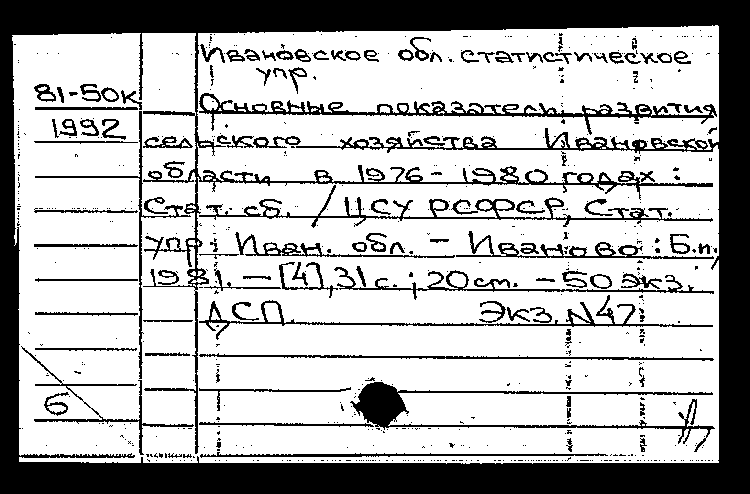 Ивановское обл. статистическое
упр.
81-50к
Основные показатели развития
1992
сельского хозяйства Ивановской
области в 1976-1980 годах :
Стат. сб. / ЦСУ РСФСР, Стат.
упр. Иван. обл. - Иваново : Б.и.,
1981. - [4], 31 с. ; 20 см. - 50 экз.
ДСП. Экз. N47
б